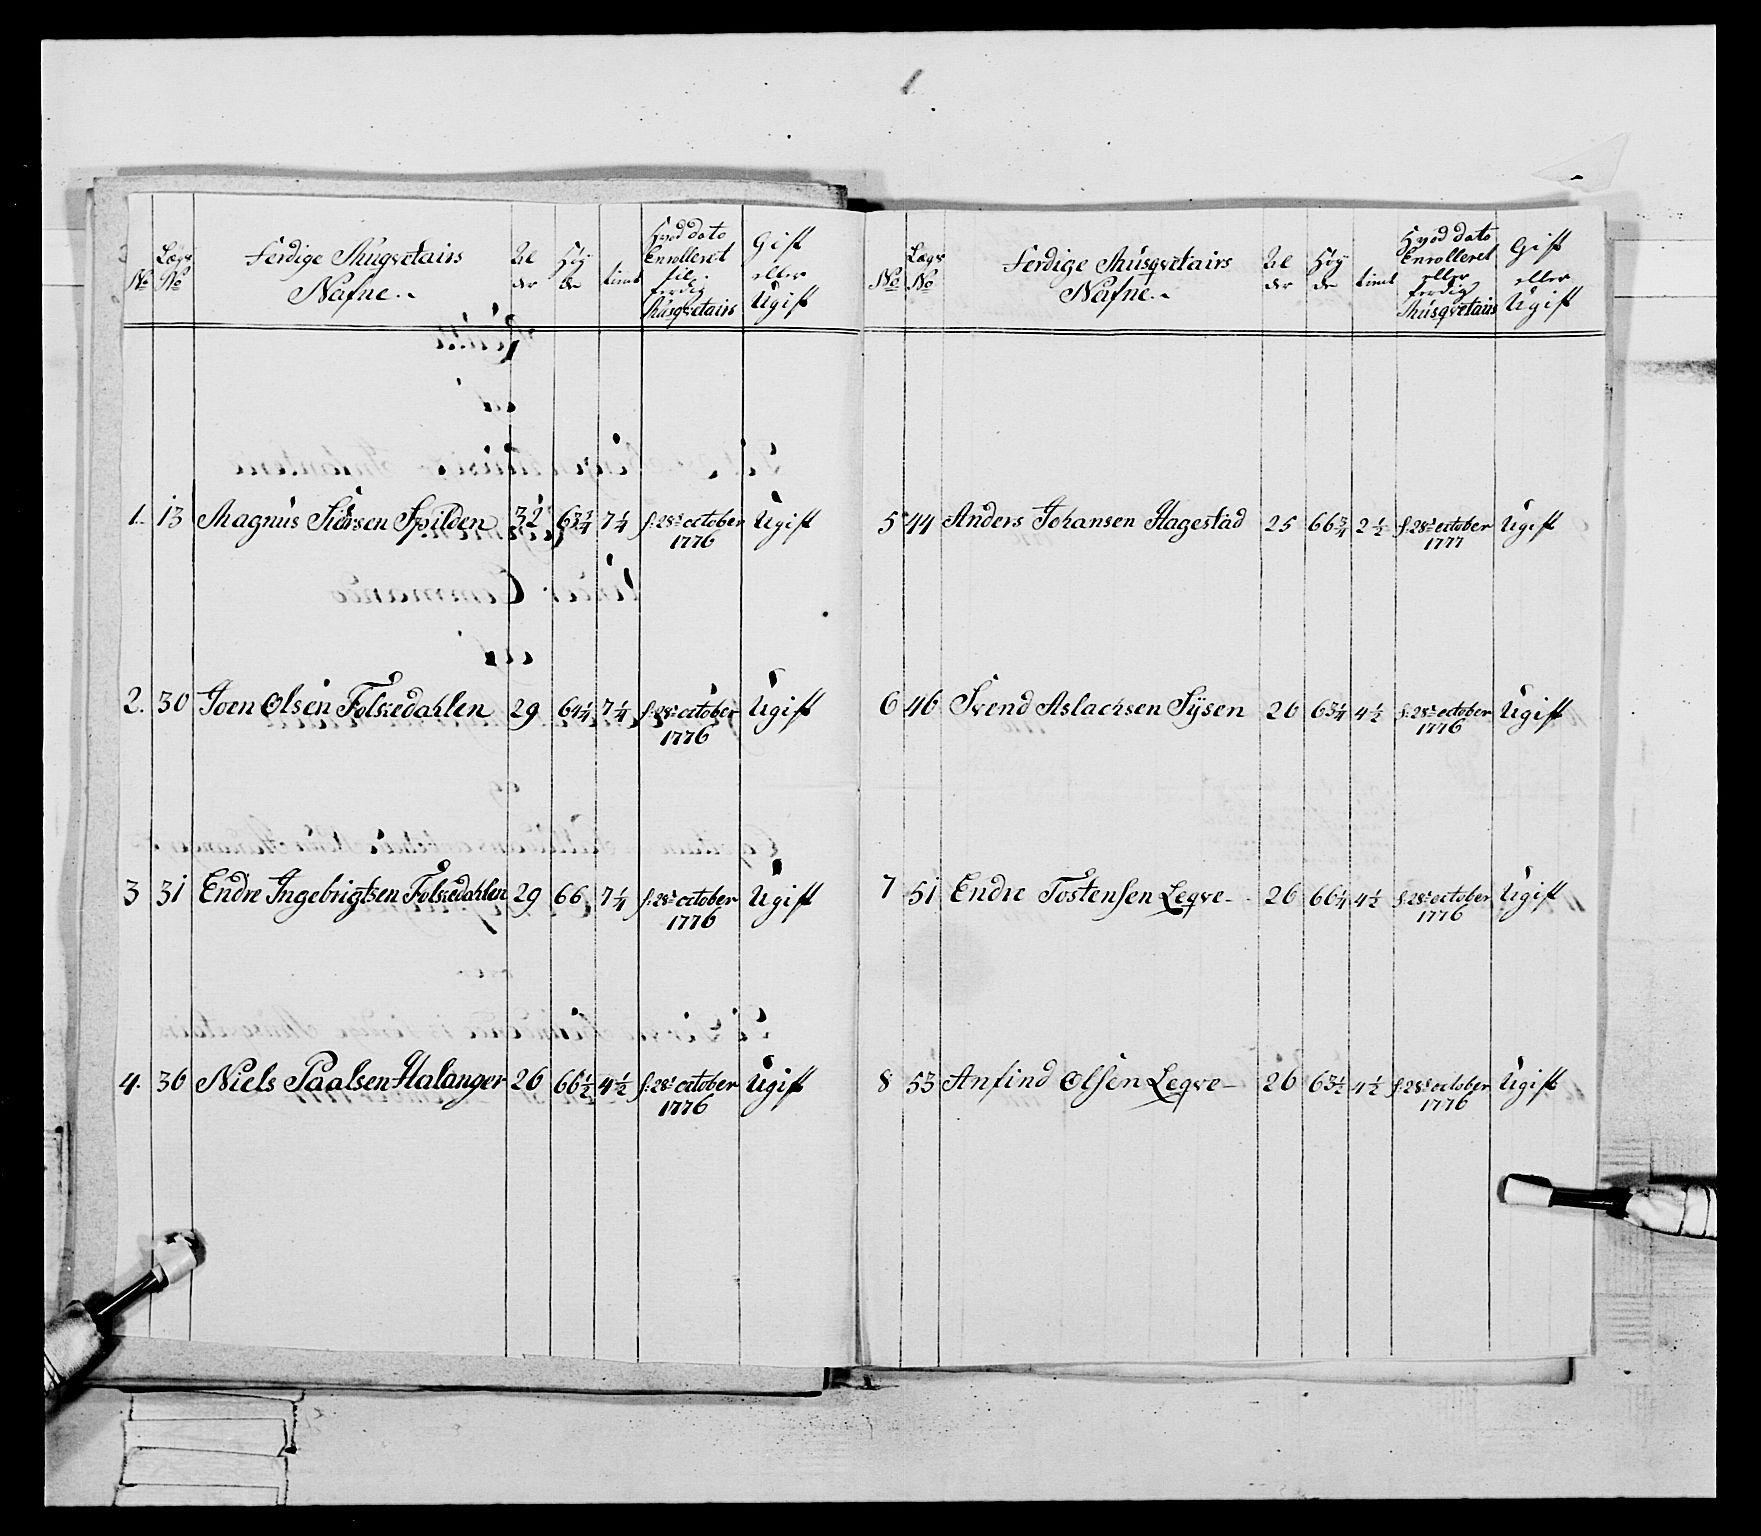 No Lægs No Ferdige Musqvetairs Nafne.. Al der Høy de timt Hvad dato Enrolleret til ferdig Musqvetairs Gift eller Ugift
1. 13 Magnus Siursen Spilden 32 63 3/4 7 1/4 d: 28de october 1776 Ugift
2. 30 Joen Olsen Folkedahlen 29 64 1/4 7 1/4 d: 28de october 1776 Ugift
3 31 Endre Ingebrigtsen Folkedahlen 29 66 7 1/4 d: 28de october 1776 Ugift
4. 36 Niels Paalsen Halanger 26 66 1/2 4 1/2 d: 28de october 1776 Ugift
No Lægs No Ferdige Musqvetairs Nafne.. Al der Høy de timt Hvad dato Enrolleret eller ferdig Musqvetairs Gift eller Ugift
5 44 Anders Johansen Hagestad 25 66 3/4 2 1/2 d: 28de october 1777 Ugift
6 46 Svend Aslachsen Sysen 26 63 1/4 4 1/2 d: 28de october 1776 Ugift
7 51 Endre Tostensen Leqve 26 66 1/4 4 1/2 d: 28de october 1776 Ugift
8 53 Anfind Olsen Leqve 26 63 1/2 4 1/2 d: 28de october 1776 Ugift